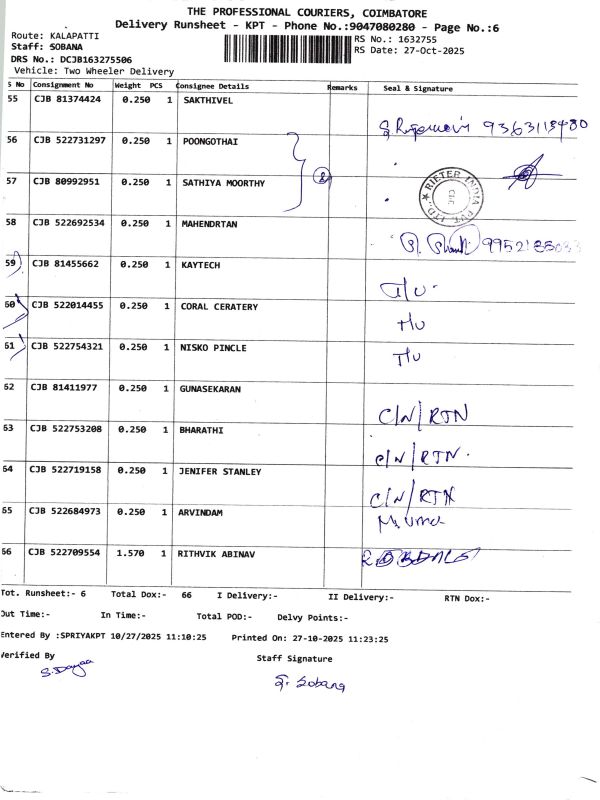 THE PROFESSIONAL COURIERS, COIMBATORE
Delivery Runsheet - KPT - Phone No.:9047080280 - Page No.:6
Route: KALAPATTI
RS No.: 1632755
Staff: SOBANA
RS Date: 27-Oct-2025
DRS No.: DCJB163275506
Vehicle: Two Wheeler Delivery
S No Consignment No Weight PCS Consignee Details Remarks Seal & Signature
55 CJB 81374424 0.250 1 SAKTHIVEL
56 CJB 522731297 0.250 1 POONGOTHAI
57 CJB 80992951 0.250 1 SATHIYA MOORTHY
RIETER INDIA PVT. LTD.
58 CJB 522692534 0.250 1 MAHENDRTAN
59 CJB 81455662 0.250 1 KAYTECH
60 CJB 522014455 0.250 1 CORAL CERATERY
61 CJB 522754321 0.250 1 NISKO PINCLE
62 CJB 81411977 0.250 1 GUNASEKARAN C/N/RTN
63 CJB 522753208 0.250 1 BHARATHI C/N/RTN.
64 CJB 522719158 0.250 1 JENIFER STANLEY C/N/RTN
65 CJB 522684973 0.250 1 ARVINDAM
66 CJB 522709554 1.570 1 RITHVIK ABINAV
Tot. Runsheet:- 6 Total Dox:- 66 I Delivery:- II Delivery:- RTN Dox:-
Out Time:- In Time:- Total POD:- Delvy Points:-
Entered By :SPRIYAKPT 10/27/2025 11:10:25 Printed On: 27-10-2025 11:23:25
Verified By Staff Signature
S. Sobang